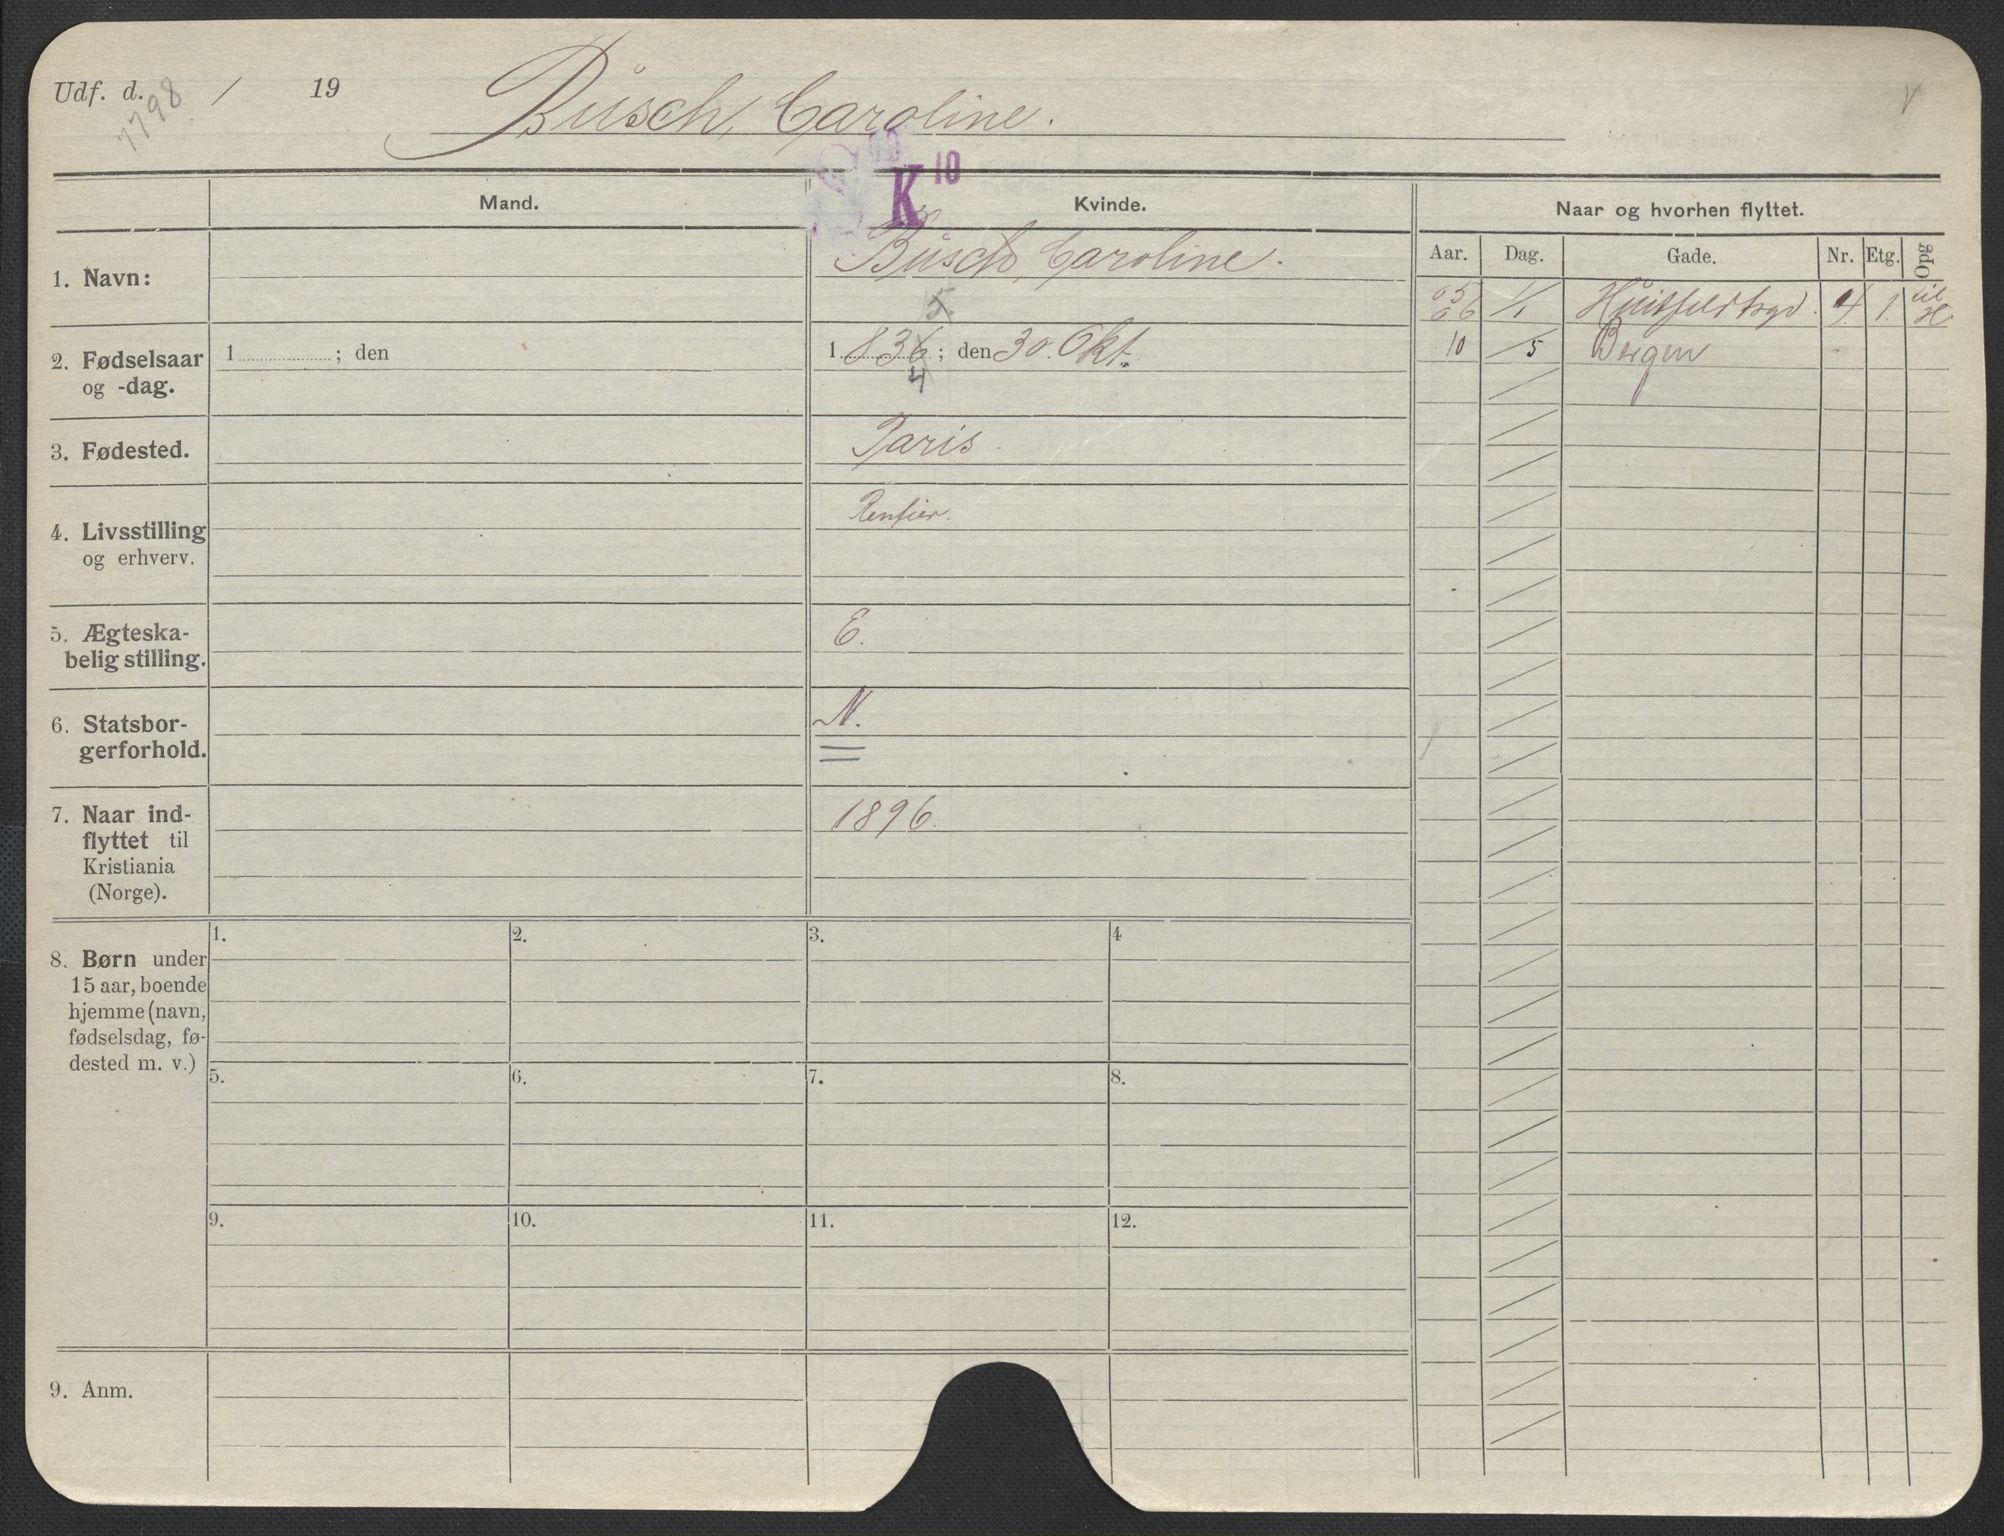 Udf. d. / 19
7798
Busch, Caroline.
V
K 10
Mand.
Kvinde.
Naar og hvorhen flyttet.
Aar. Dag. Gade. Nr. Etg. Opg
1. Navn:
Busch, Caroline.
05 06 1/1 Huitfeldtsgd. 4 1. til H
5.
2. Fødselsaar og -dag.
1 ; den
1 836 ; den 30. Okt.
4
10 /5 Bergen
3. Fødested.
Paris.
4. Livsstilling og erhverv.
Rentier.
5. Ægteska-
belig stilling.
E.
6. Statsbor-
gerforhold.
N.
7. Naar ind-
flyttet til
Kristiania
(Norge).
1896.
8. Børn under
15 aar, boende
hjemme (navn,
fødselsdag, fø-
dested m. v.)
1. 2. 3. 4
5. 6. 7. 8.
9. 10. 11. 12.
9. Anm.